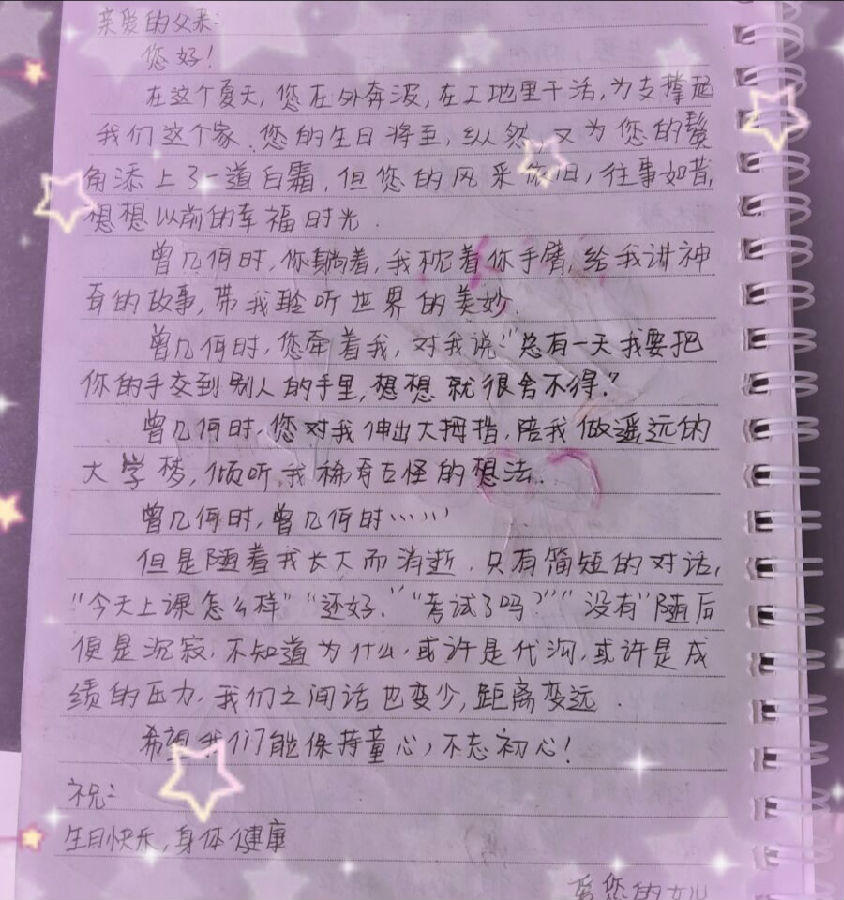 亲爱的父亲:
您好!
在这个夏天,您在外奔波,在工地里干活,为支撑起
我们这个家.您的生日将至,纵然,又为您的鬓
角添上了一道白霜,但您的风采依旧,往事如昔,
想想以前的幸福时光.
曾几何时,你躺着,我枕着你手臂,给我讲神
奇的故事,带我聆听世界的美妙.
曾几何时,您牵着我,对我说:“总有一天我要把
你的手交到别人的手里,想想就很舍不得.”
曾几何时,您对我伸出大拇指,陪我做遥远的
大学梦,倾听我稀奇古怪的想法.
曾几何时,曾几何时……
但是随着我长大而消逝.只有简短的对话,
“今天上课怎么样”“还好.”“考试了吗?”“没有”随后
便是沉寂.不知道为什么.或许是代沟,或许是成
绩的压力.我们之间话也变少,距离变远.
希望我们能保持童心,不忘初心!
祝:
生日快乐,身体健康
爱您的女儿